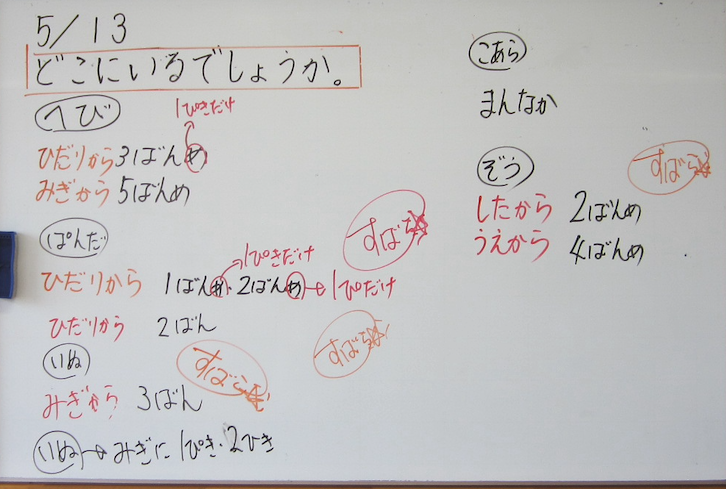 5/13
どこにいるでしょうか。
へび
1ぴきだけ
ひだりから3ばんめ
みぎから5ばんめ
ぱんだ
1ぴきだけ
ひだりから 1ばんめ・2ばんめ→1ぴだけ
ひだりから 2ばん
いぬ
みぎから 3ばん
いぬ→みぎに1ぴき・2ひき
すばら
すばら
すばら
こあら
まんなか
ぞう
したから 2ばんめ
うえから 4ばんめ
すばら